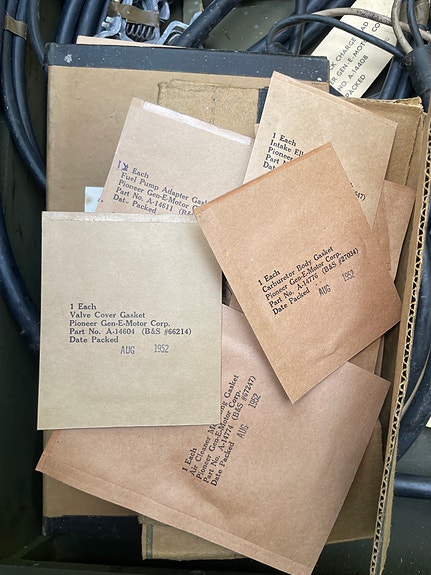 K CHARGE
GEN-E-MOTOR CO
NO. A-14408
PACKED
1 Each
Fuel Pump Adapter Gask
Pioneer Gen-E-Motor C
Part No. A-14611 (B&S
Date Packed
1 Each
Intake
Pioneer
Part
Date
1 Each
Carburetor Body Gasket
Pioneer Gen-E-Motor Corp.
Part No. A-14776 (B&S #27034)
Date Packed
AUG 1952
1 Each
Valve Cover Gasket
Pioneer Gen-E-Motor Corp.
Part No. A-14604 (B&S #66214)
Date Packed
AUG 1952
1 Each
Air Cleaner M ing Gasket
Pioneer Gen-E-Motor Corp.
Part No. A-14774 (B&S #67247)
Date Packed
AUG 1952